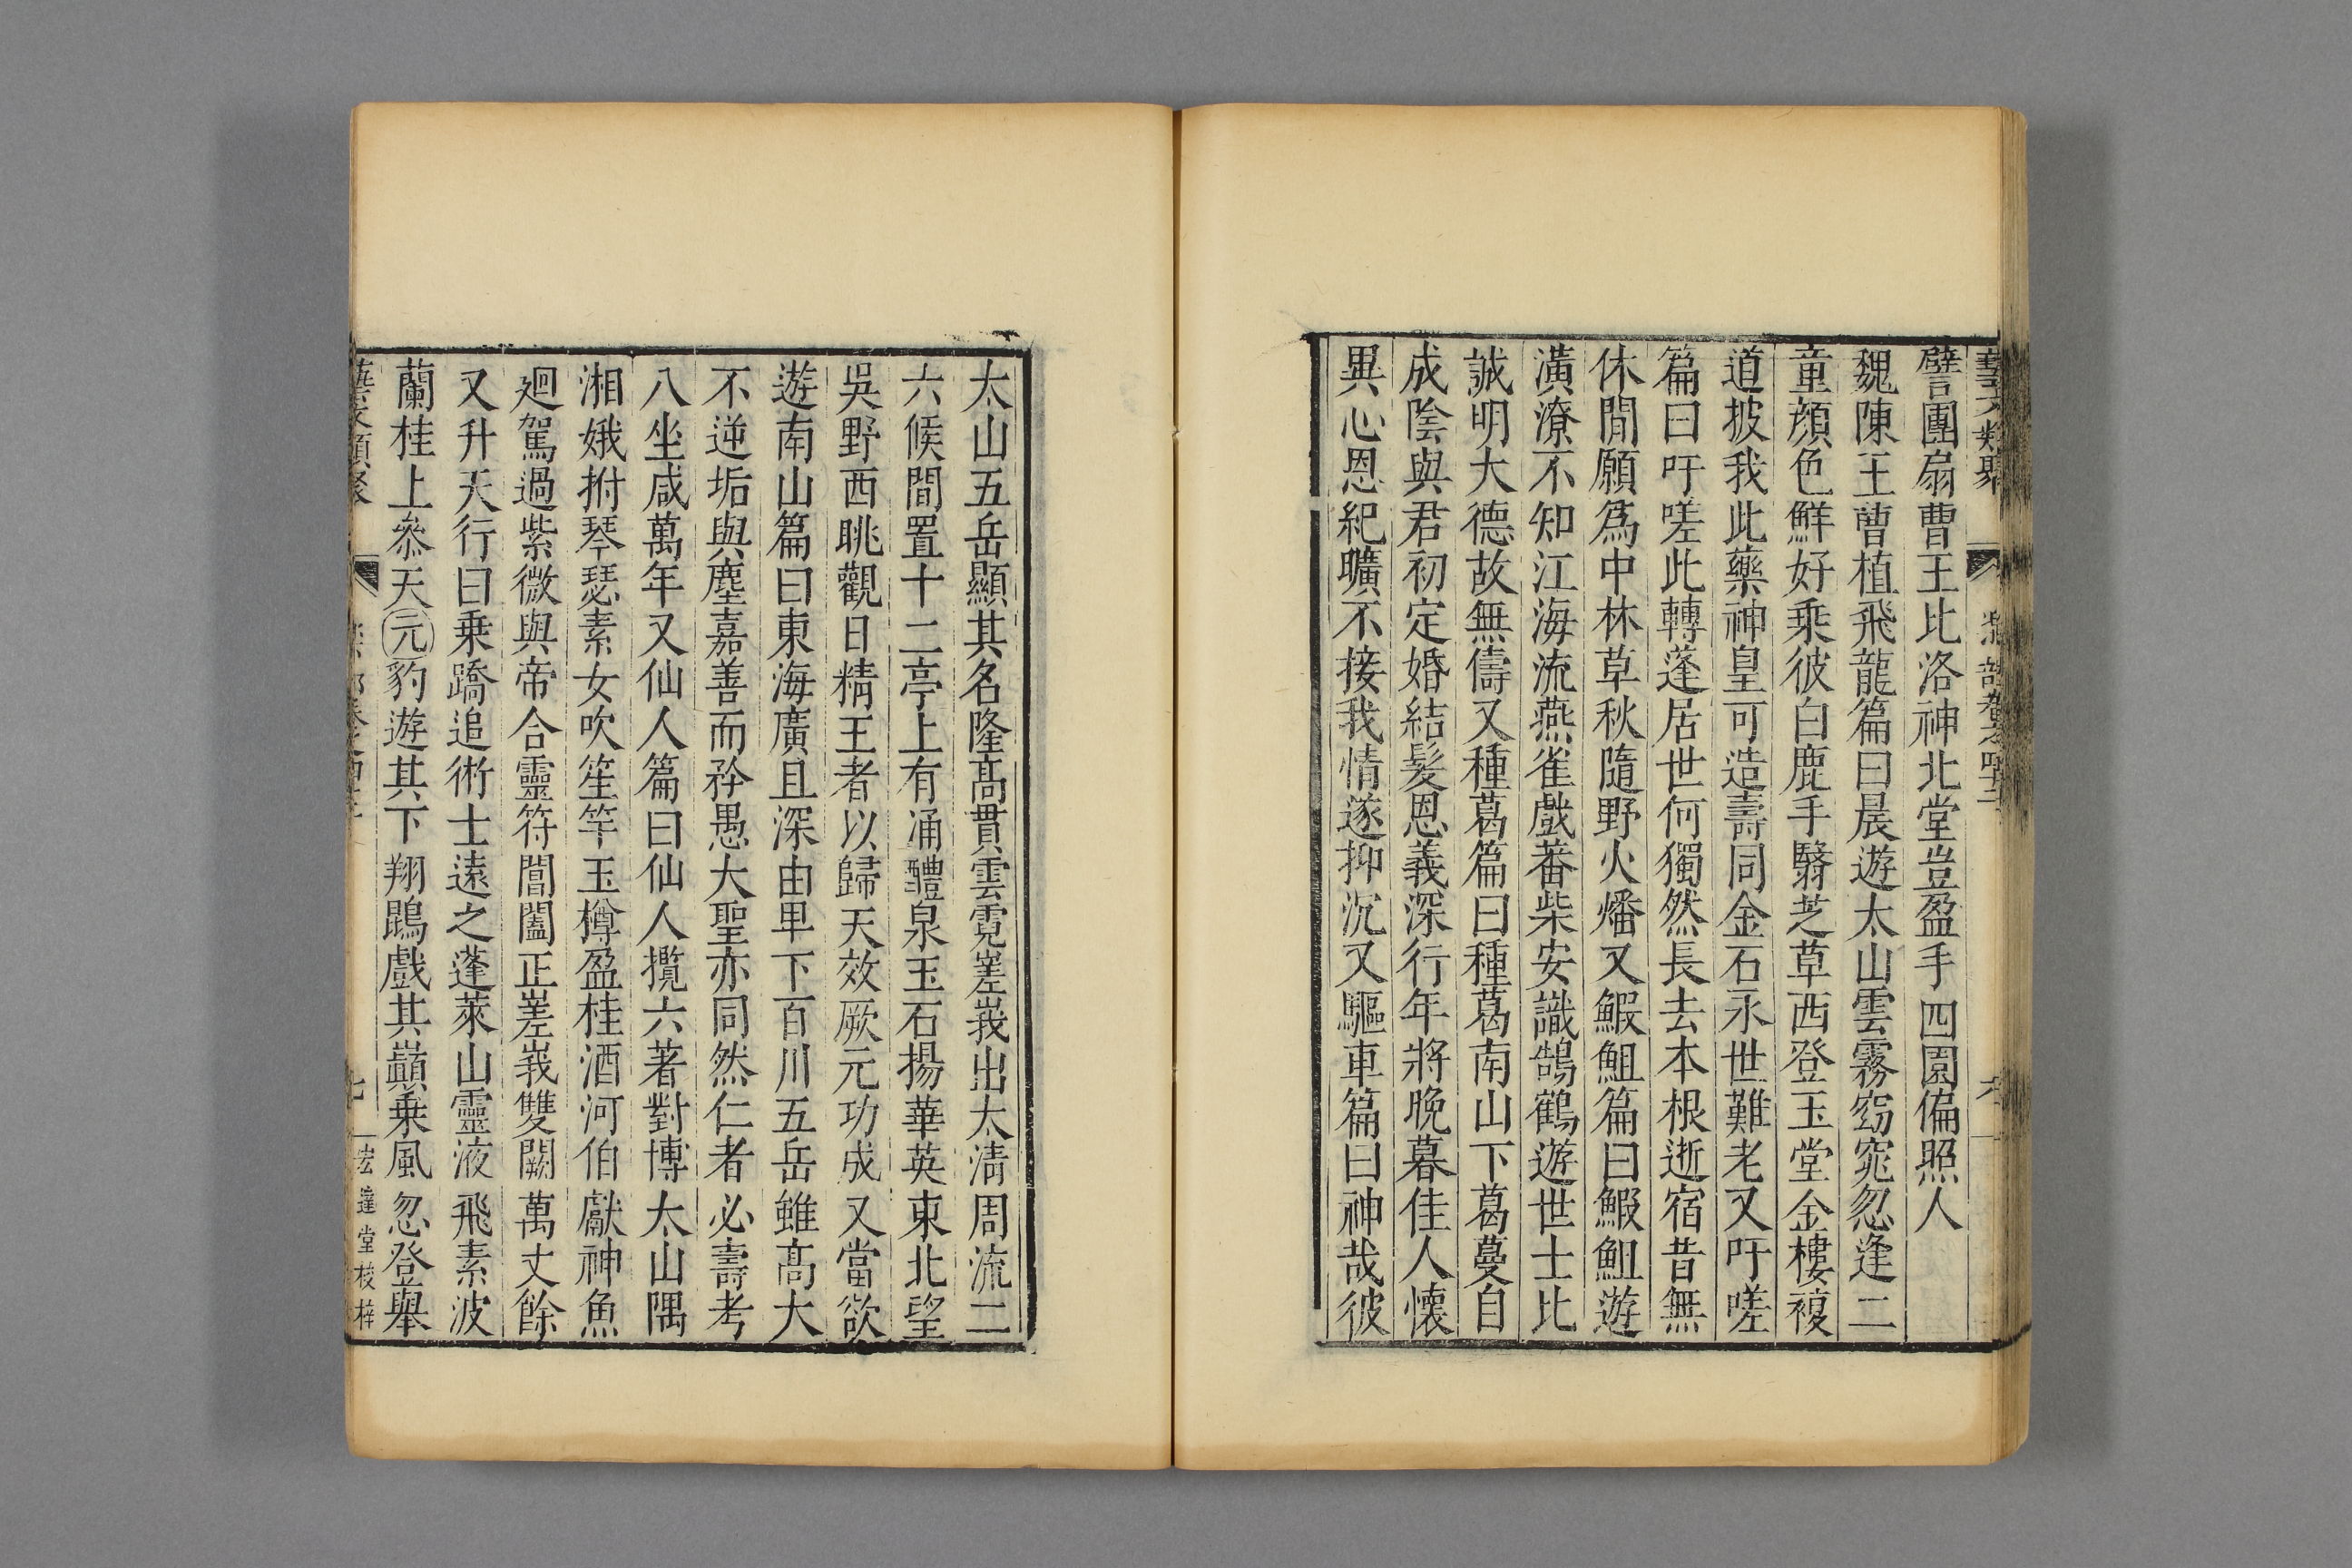 譬團扇曹王比洛神北堂豈盈手四園偏照人
魏陳王曹植飛龍篇曰晨遊太山雲霧窈窕忽逢二
童顔色鮮好乘彼白鹿手翳芝草西登玉堂金樓複
道披我此藥神皇可造壽同金石永世難老又吁嗟
篇曰吁嗟此轉蓬居世何獨然長去本根逝宿昔無
休閒願為中林草秋隨野火燔又鰕䱇篇曰鰕䱇遊
潢潦不知江海流燕雀戲蕃柴安識鵠鶴遊世士比
誠明大德故無儔又種葛篇曰種葛南山下葛蔓自
成陰與君初定婚結髮恩義深行年將晚暮佳人懷
異心恩紀曠不接我情遂抑沉又驅車篇曰神哉彼
太山五岳顯其名隆髙貫雲霓嵳峩出太淸周流二
六候間置十二亭上有涌醴泉玉石揚華英東北望
吳野西眺觀日精王者以歸天效厥元功成又當欲
遊南山篇曰東海廣且深由𤰞下百川五岳雖髙大
不逆垢與塵嘉善而矜愚大聖亦同然仁者必壽考
八坐咸萬年又仙人篇曰仙人攬六著對博太山隅
湘娥拊琴瑟素女吹笙竽玉樽盈桂酒河伯獻神魚
廻駕過紫微與帝合靈符閶闔正嵳峩雙闕萬丈餘
又升天行曰乗蹻追術士遠之蓬萊山靈液飛素波
蘭桂上叅天元豹遊其下翔鵾戲其巔乗風忽登舉